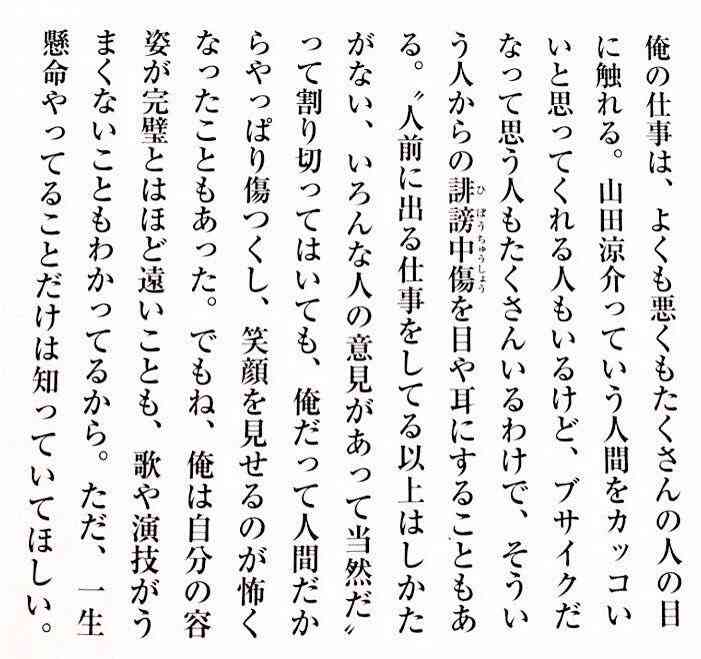 俺の仕事は、よくも悪くもたくさんの人の目
に触れる。山田涼介っていう人間をカッコい
いと思ってくれる人もいるけど、ブサイクだ
なって思う人もたくさんいるわけで、そうい
う人からの誹謗中傷を目や耳にすることもあ
る。〝人前に出る仕事をしてる以上はしかた
がない、いろんな人の意見があって当然だ〟
って割り切ってはいても、俺だって人間だか
らやっぱり傷つくし、笑顔を見せるのが怖く
なったこともあった。でもね、俺は自分の容
姿が完璧とはほど遠いことも、歌や演技がう
まくないこともわかってるから。ただ、一生
懸命やってることだけは知っていてほしい。